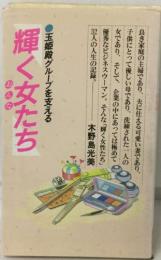 ●玉姫殿グループを支える
輝く女たち
おんな
良き家庭の主婦であり、夫に仕える可愛い妻であり、
子供にとって優しい母であり、洗練された一人の
女であり、そして、企業の中にあっては極めて
優秀なビジネスウーマン。そんな「輝く女性たち」
32人の人生の記録。
木野島光美